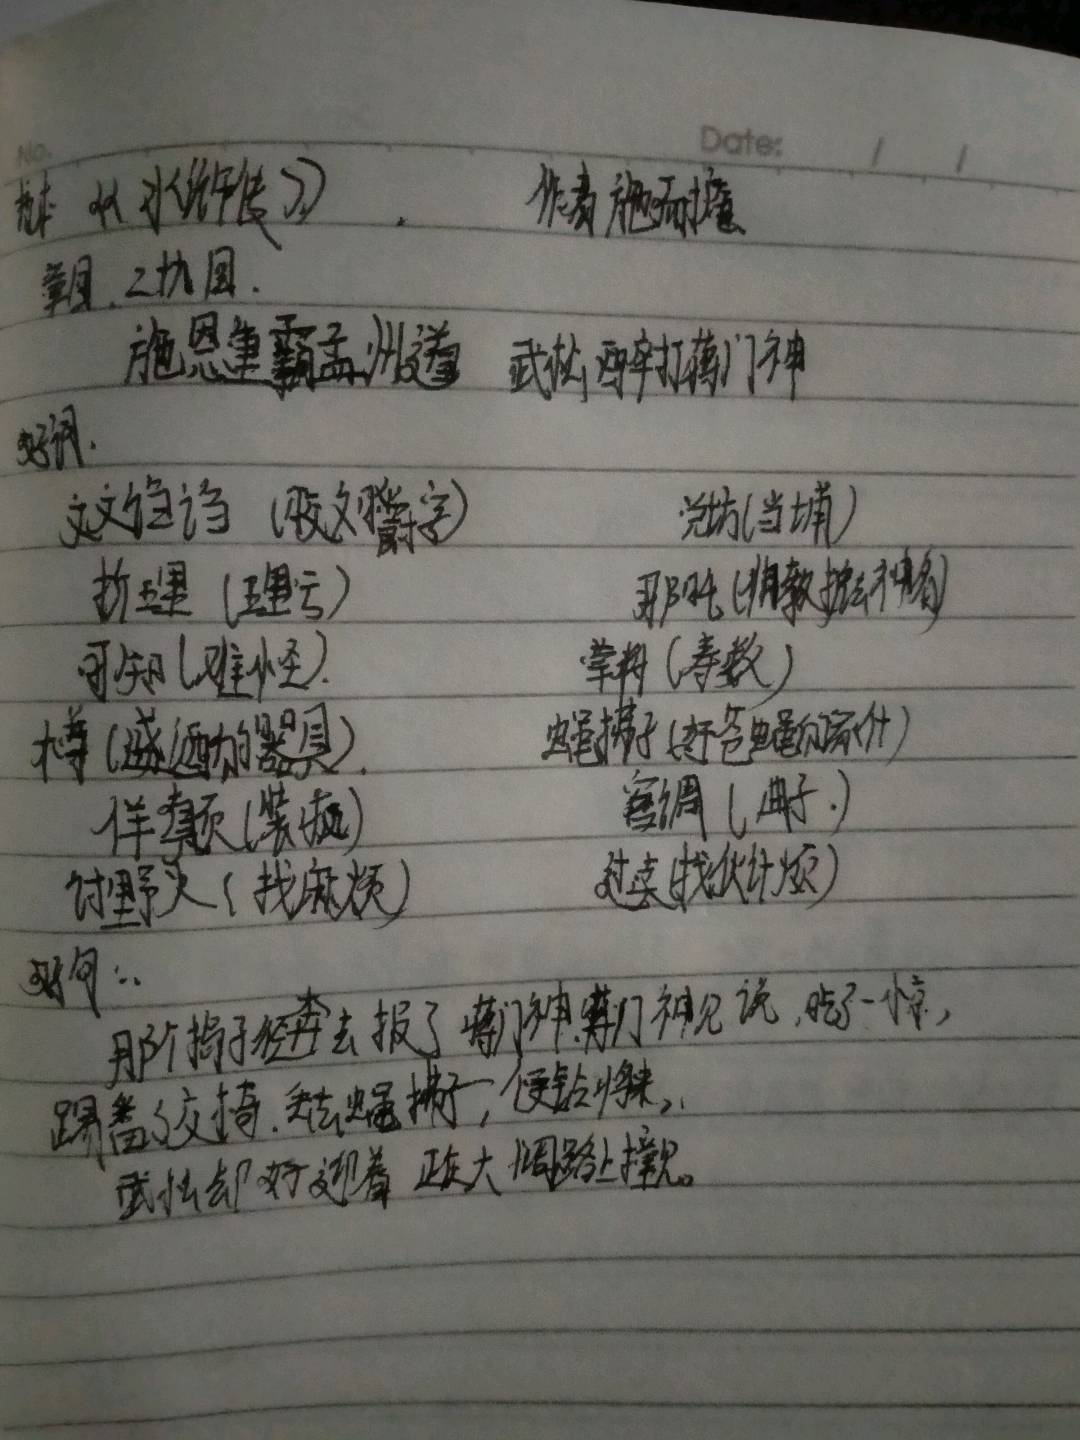 No. Date: / /
书《水浒传》 作者施耐庵
章回.二九回.
施恩重霸孟州道 武松醉打蒋门神
好词.
文文诌诌(咬文嚼字) 兑坊(当埔)
折理(理亏) 那吒(佛教护法神名)
可知(难怪). 掌料(寿数)
樽(盛酒的器具). 蝇拂子(赶苍蝇的家什)
佯颠(装疯) 宫调(曲子.)
讨野火(找麻烦) 过卖(找伙计烦)
好句:.
那个捣子径奔去报了蒋门神.蒋门神见说,吃了一惊,
踢翻了交椅.丢去蝇拂子,便钻将来,.
武松却好迎着 正在大阔路上撞见。